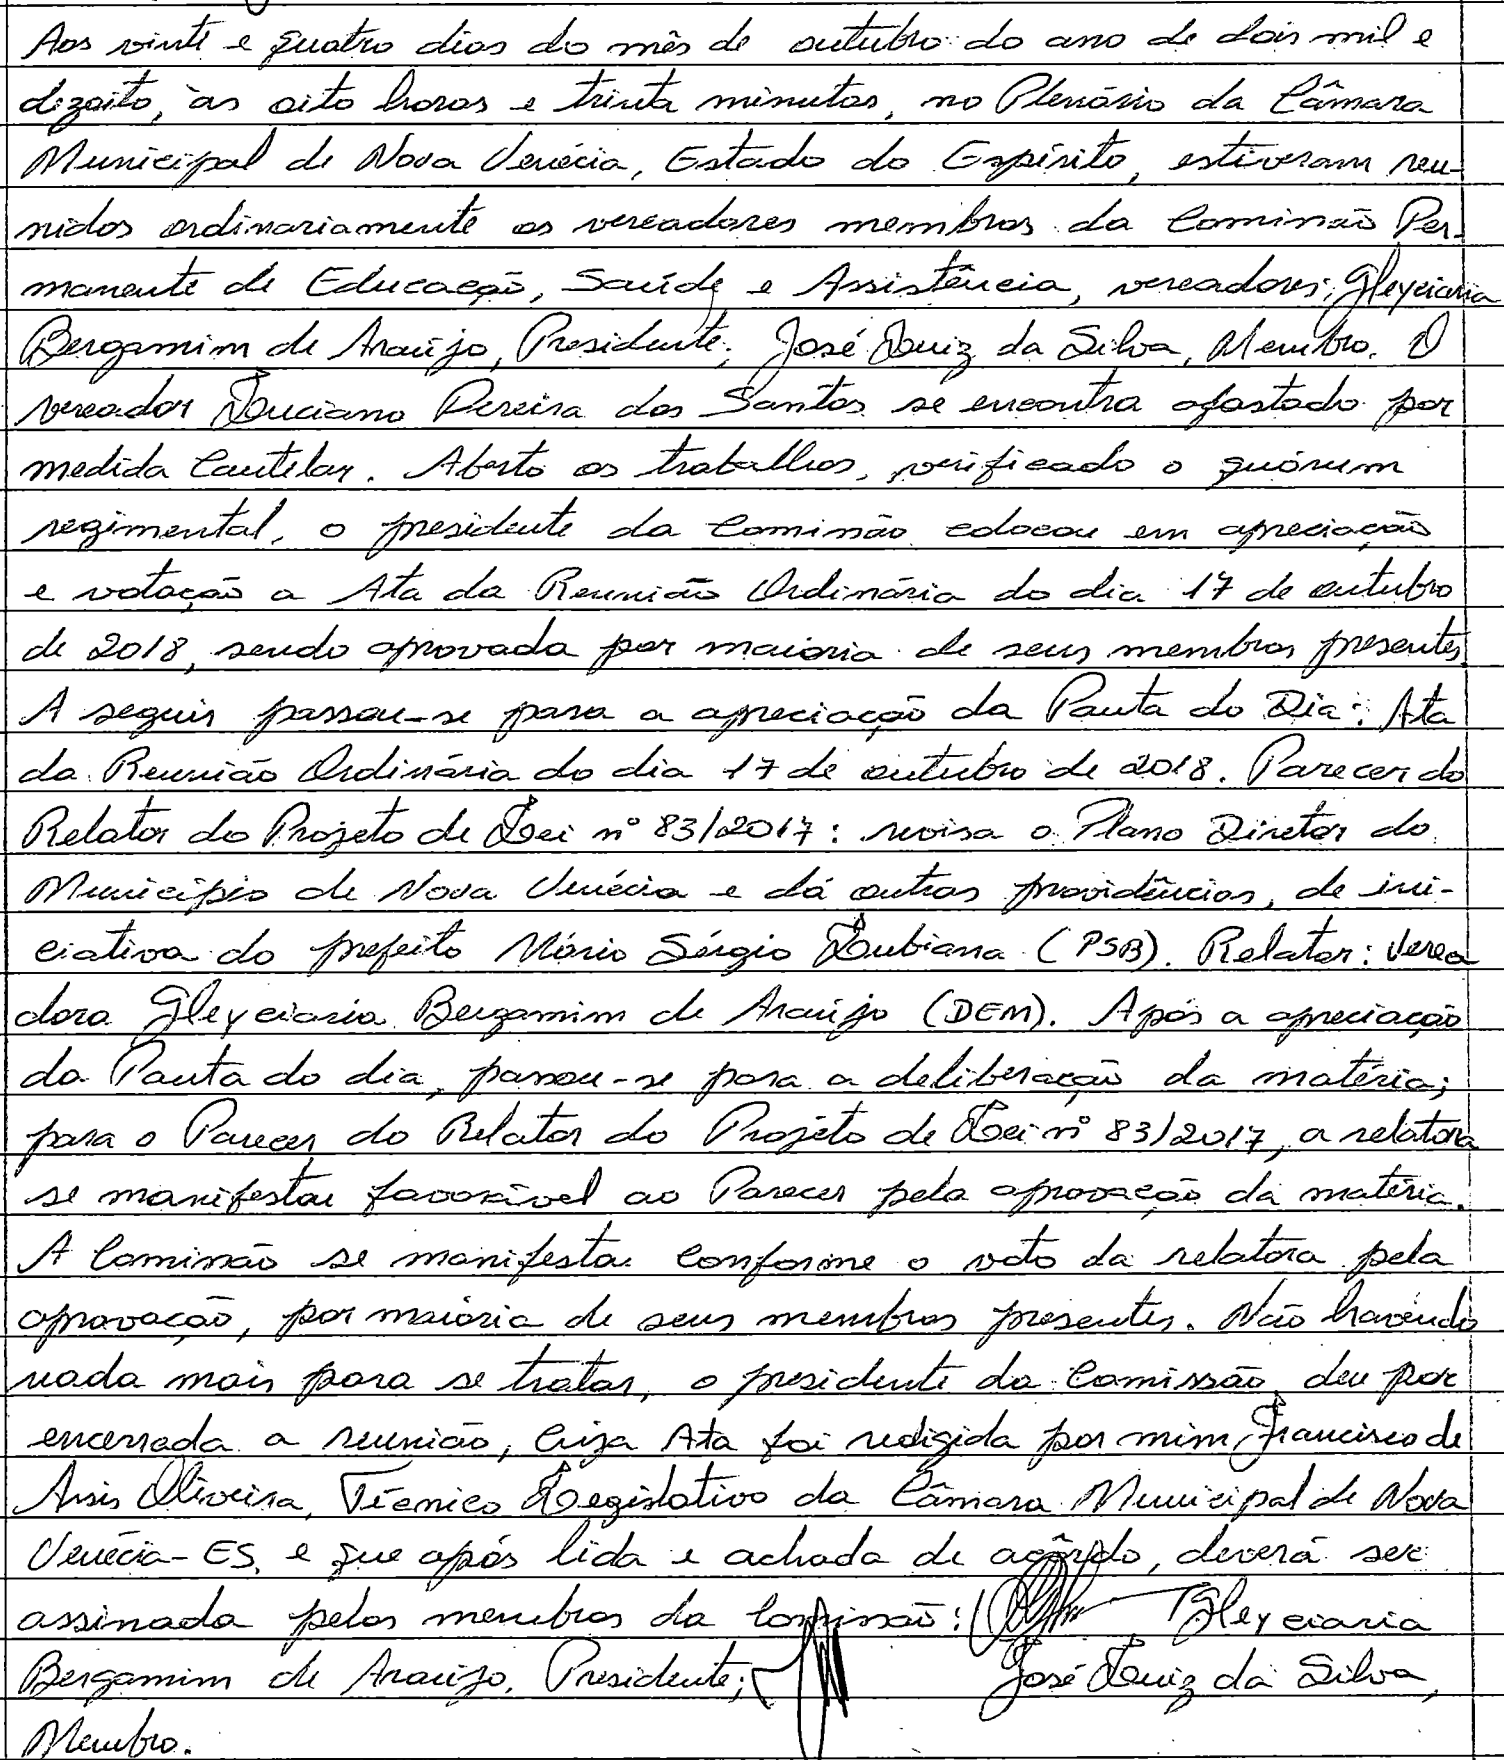 Aos vinte e quatro dias do mês de outubro do ano de dois mil e
dezoito, às oito horas e trinta minutos, no Plenário da Câmara
Municipal de Nova Venécia, Estado do Espírito, estiveram reu-
nidos ordinariamente os vereadores membros da Comissão Per-
manente de Educação, Saúde e Assistência, vereadores: Gleyciaria
Bergamim de Araújo, Presidente; José Luiz da Silva, Membro. O
vereador Luciano Pereira dos Santos se encontra afastado por
medida Cautelar. Aberto os trabalhos, verificado o quórum
regimental, o presidente da Comissão colocou em apreciação
e votação a Ata da Reunião Ordinária do dia 17 de outubro
de 2018, sendo aprovada por maioria de seus membros presentes.
A seguir passou-se para a apreciação da Pauta do Dia: Ata
da Reunião Ordinária do dia 17 de outubro de 2018. Parecer do
Relator do Projeto de Lei nº 83/2017: revisa o Plano Diretor do
Município de Nova Venécia e dá outras providências, de ini-
ciativa do prefeito Mário Sérgio Lubiana (PSB). Relator: Verea
dora Gleyciaria Bergamim de Araújo (DEM). Após a apreciação
da Pauta do dia, passou-se para a deliberação da matéria;
para o Parecer do Relator do Projeto de Lei nº 83/2017, a relatora
se manifestou favorável ao Parecer pela aprovação da matéria.
A Comissão se manifestou conforme o voto da relatora pela
aprovação, por maioria de seus membros presentes. Não havendo
nada mais para se tratar, o presidente da Comissão, deu por
encerrada a reunião, cuja Ata foi redigida por mim, Francisco de
Assis Oliveira, Técnico Legislativo da Câmara Municipal de Nova
Venécia-ES, e que após lida e achada de acôrdo, deverá ser
assinada pelos membros da Comissão: Gleyciaria
Bergamim de Araújo, Presidente; José Luiz da Silva,
Membro.